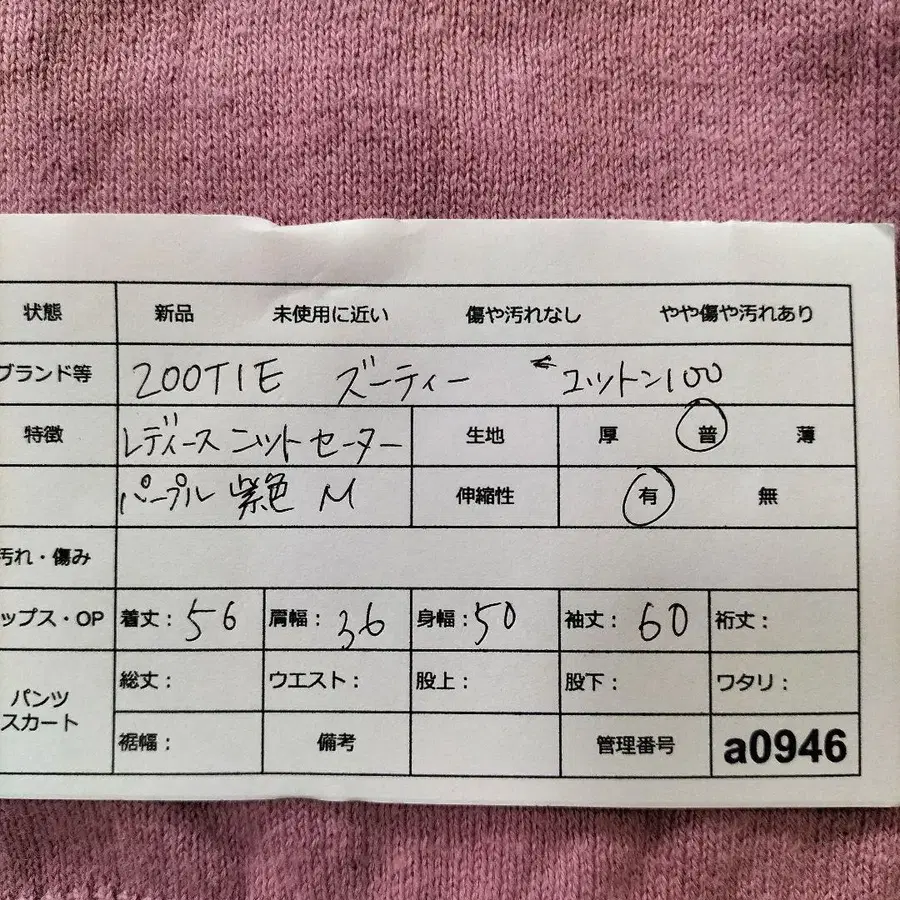 状態 新品 未使用に近い 傷や汚れなし やや傷や汚れあり
ブランド等 ZOOTIE ズーティー コットン100
特徴 レディース ニット セーター 生地 厚 普 薄
パープル 紫色 M 伸縮性 有 無
汚れ・傷み
ップス・OP 着丈: 56 肩幅: 36 身幅: 50 袖丈: 60 裄丈:
パンツ スカート 総丈: ウエスト: 股上: 股下: ワタリ:
裾幅: 備考 管理番号 a0946